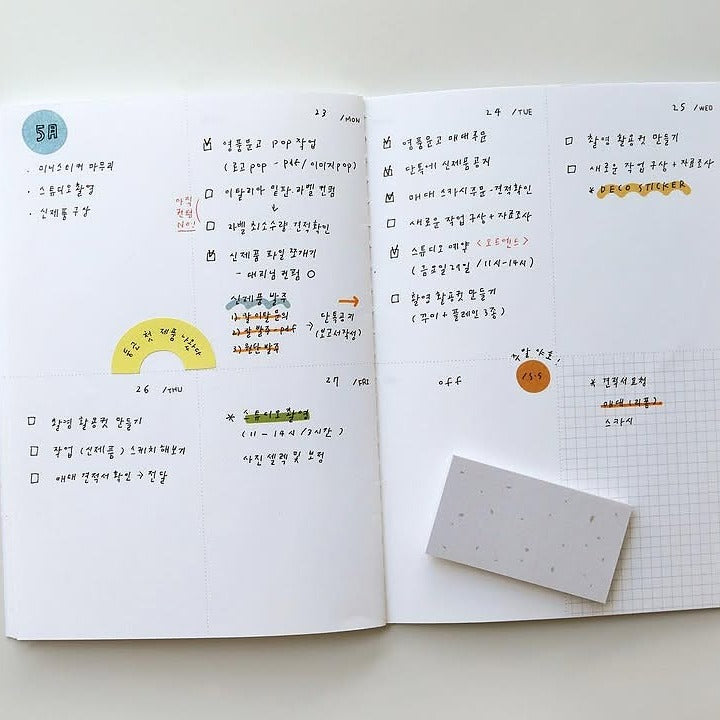 5月
· 미니스티커 마무리
· 스튜디오 촬영
· 신제품 구상
첫 제품 나왔다
23 /MON
영풍문고 pop 작업
(로고 pop - pdf / 이미지 pop)
이탈리아 원단 라벨 컨펌
아직
컨펌
No!
라벨 최소수량 견적확인
신제품 파일 쪼개기
- 대리님 컨펌 O
신제품 발주
1) 칼이탈 문의
2) 칼 발주 - pdf
3) 원단 발주
→ 단톡공지
(보고서작성)
24 /TUE
영풍문고 매대
단톡에 신제품공지
매대 스카시주문 - 견적확인
새로운 작업 구상 + 자료조사
스튜디오 예약 <오드엔드>
(금요일 27일 / 11시-14시)
촬영 활공컷 만들기
(꾸미 + 플레인 3종)
25 /WED
촬영 활공컷 만들기
새로운 작업 구상 + 자료조사
* DECO STICKER
26 /THU
촬영 활공컷 만들기
작업 (신제품) 스케치 해보기
매대 견적서 확인 → 전달
27 /FRI
* 스튜디오 촬영
(11-14시 / 3시간)
사진 셀렉 및 보정
off
* 견적서 요청
매대 (리폼)
스카시